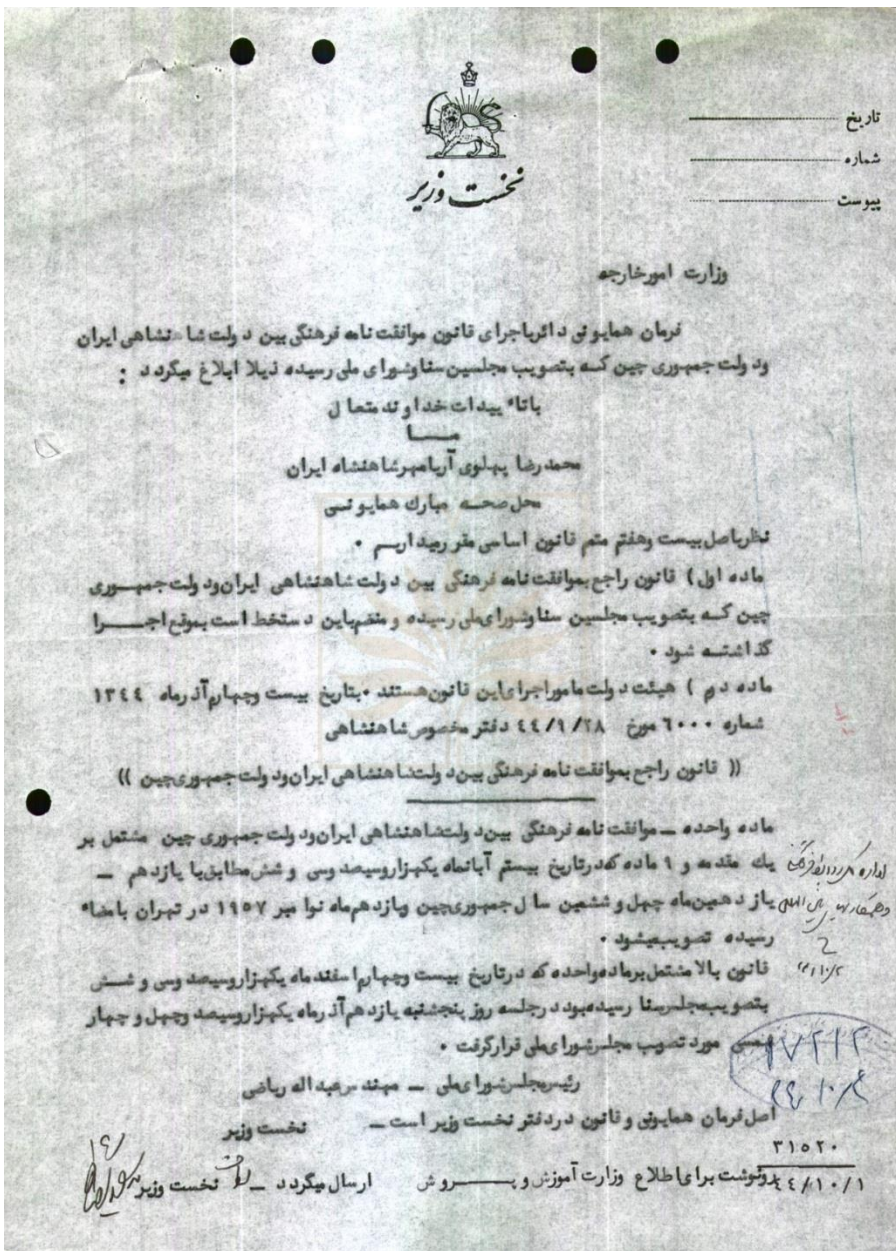 نخست وزیر
تاریخ
شماره
پیوست
وزارت امورخارجه
فرمان همایونی دائرباجرای قانون موافقت نامه فرهنگی بین دولت شاهنشاهی ایران
ودولت جمهوری چین که بتصویب مجلسین سناوشورای ملی رسیده ذیلا ابلاغ میگردد :
باتاء ییدات خداوند متعال
مــا
محمدرضا پهلوی آریامهرشاهنشاه ایران
محل صحه مبارك همایونی
نظرباصل بیست وهفتم متمم قانون اساسی مقررمیداریم .
ماده اول ) قانون راجع بموافقت نامه فرهنگی بین دولت شاهنشاهی ایران ودولت جمهوری
چین که بتصویب مجلسین سناوشورای ملی رسیده و منضم باین دستخط است بموقع اجرا
گذاشته شود .
ماده دوم ) هیئت دولت مامور اجرای این قانون هستند . بتاریخ بیست وچهارم آذرماه ۱۳۴۴
شماره ۶۰۰۰ مورخ ۴۴/۹/۲۸ دفتر مخصوص شاهنشاهی
(( قانون راجع بموافقت نامه فرهنگی بین دولت شاهنشاهی ایران ودولت جمهوری چین ))
ماده واحده ــ موافقت نامه فرهنگی بین دولت شاهنشاهی ایران ودولت جمهوری چین مشتمل بر
یك مقدمه و ۹ ماده که درتاریخ بیستم آبانماه یکهزاروسیصد وسی و شش مطابق با یازدهم ــ
یازدهمین ماه چهل و ششمین سال جمهوری چین ویازدهم ماه نوامبر ۱۹۵۷ در تهران بامضاء
رسیده تصویب میشود .
قانون بالا مشتمل برماده واحده که درتاریخ بیست وچهارم اسفندماه یکهزاروسیصد وسی و شش
بتصویب مجلس سنا رسیده بود درجلسه روز پنجشنبه یازدهم آذرماه یکهزاروسیصد وچهل و چهار
شمسی مورد تصویب مجلس شورای ملی قرارگرفت .
رئیس مجلس شورای ملی ــ مهندس عبداله ریاضی
اصل فرمان همایونی و قانون در دفتر نخست وزیر است ــ نخست وزیر
۳۱۵۲۰
۴۴/۱۰/۱
رونوشت برای اطلاع وزارت آموزش و پــرورش ارسال میگردد ــ نخست وزیر
اداره کل روابط فرهنگی
و همکاریهای بین المللی
۱۷۲۱۲
۴۴/۱۰/۴